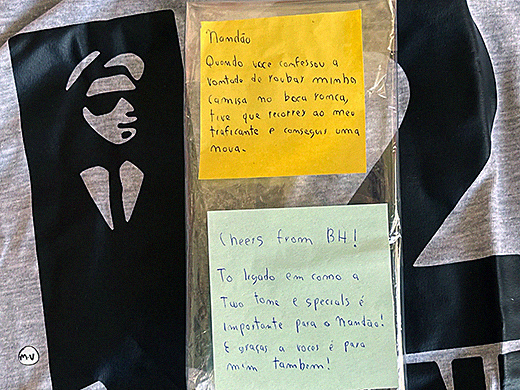 Nandão
Quando voce confessou a
vontade de roubar minha
camisa no boca ronca,
tive que recorrer ao meu
traficante e conseguir uma
nova.
Cheers from BH!
To ligado em como a
Two tone e specials é
importante para o Nandão!
E graças a voces é para
mim tambem!
2
MV